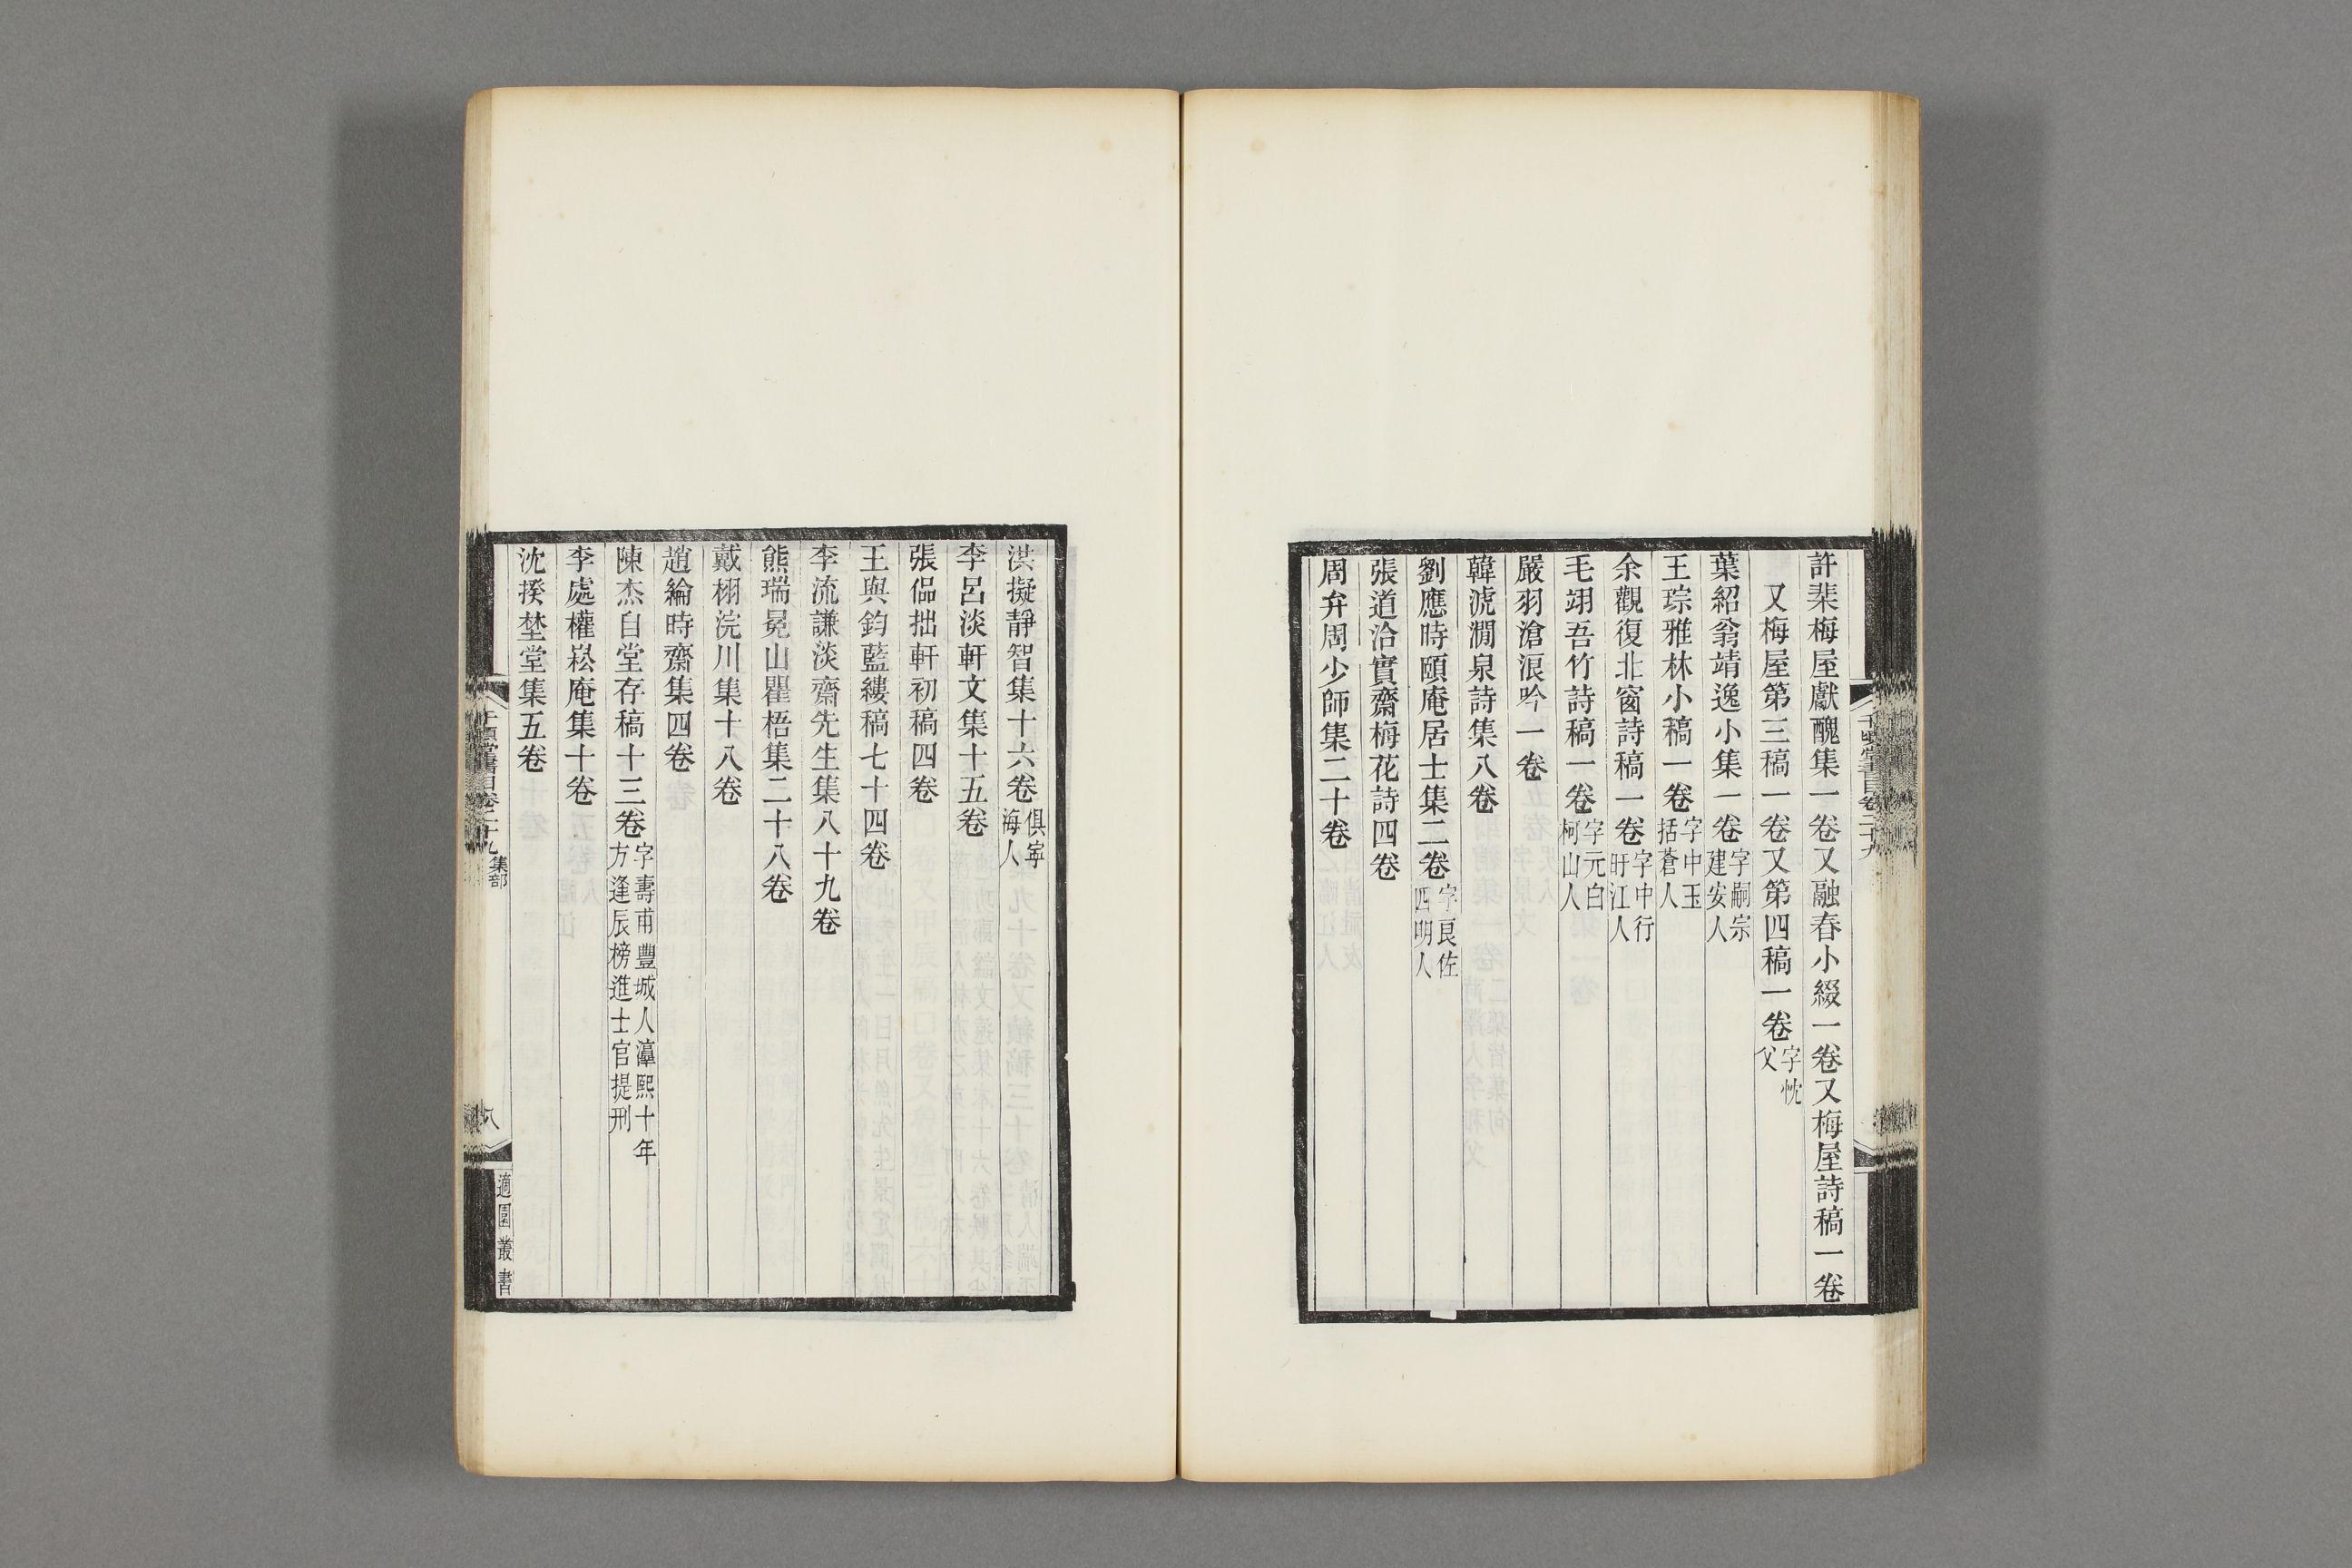 許棐梅屋獻醜集一卷又融春小綴一卷又梅屋詩稿一卷
又梅屋第三稿一卷又第四稿一卷字忱父
葉紹翁靖逸小集一卷字嗣宗建安人
王琮雅林小稿一卷字中玉括蒼人
余觀復北窗詩稿一卷字中行旴江人
毛翊吾竹詩稿一卷字元白柯山人
嚴羽滄浪吟一卷
韓淲澗泉詩集八卷
劉應時頤庵居士集二卷字良佐四明人
張道洽實齋梅花詩四卷
周弁周少師集二十卷
洪擬靜智集十六卷俱寧海人
李呂淡軒文集十五卷
張侃拙軒初稿四卷
王與鈞藍縷稿七十四卷
李流謙淡齋先生集八十九卷
熊瑞冕山瞿梧集二十八卷
戴栩浣川集十八卷
趙綸時齋集四卷
陳杰自堂存稿十三卷字壽甫豐城人淳熙十年方逢辰榜進士官提刑
李處權崧庵集十卷
沈揆埜堂集五卷
千頃堂書目卷二十九
集部
八
適園叢書